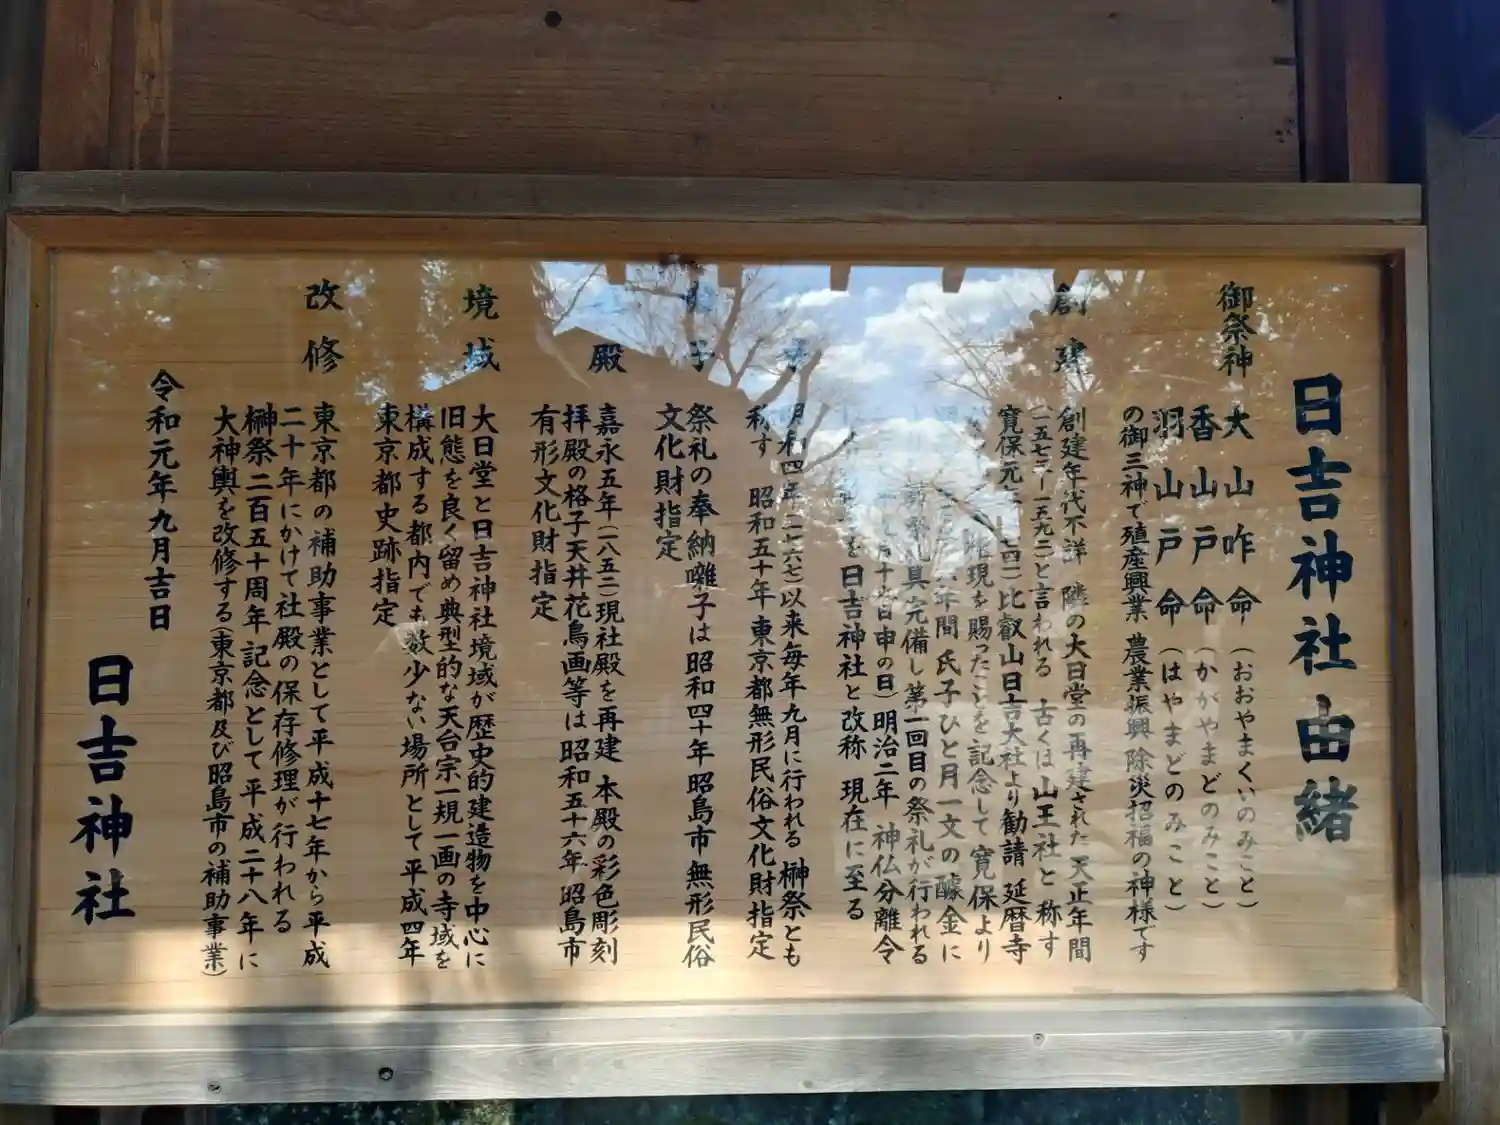 日吉神社由緒
御祭神 大山咋命（おおやまくいのみこと）
香山戸命（かがやまどのみこと）
羽山戸命（はやまどのみこと）
の御三神で殖産興業 農業振興 除災招福の神様です
創建 創建年代不詳 隣の大日堂の再建された天正年間
（一五七三－一五九二）と言われる 古くは山王社と称す
寛保元年 比叡山日吉大社より勧請 延暦寺
現を賜ったことを記念して寛保より
年間 氏子ひと月一文の醵金に
祭礼具完備し第一回目の祭礼が行われる
日申の日）明治二年 神仏分離令
を日吉神社と改称 現在に至る
明和四年（一七六七）以来毎年九月に行われる 榊祭とも
称す 昭和五十年 東京都無形民俗文化財指定
祭礼の奉納囃子は昭和四十年 昭島市 無形民俗
文化財指定
殿 嘉永五年（一八五二）現社殿を再建 本殿の彩色彫刻
拝殿の格子天井花鳥画等は昭和五十六年 昭島市
有形文化財指定
境域 大日堂と日吉神社境域が歴史的建造物を中心に
旧態を良く留め典型的な天台宗一規一画の寺域を
構成する都内でも数少ない場所として平成四年
東京都史跡指定
改修 東京都の補助事業として平成十七年から平成
二十年にかけて社殿の保存修理が行われる
榊祭二百五十周年記念として平成二十八年に
大神輿を改修する（東京都及び昭島市の補助事業）
令和元年九月吉日
日吉神社